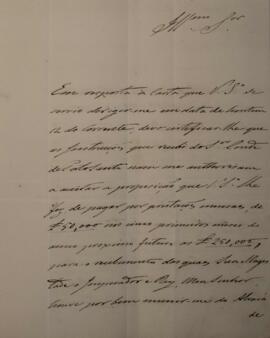 Em resposta da Carta que V. S.ª se
servio dirigir-me em data de hontem
12 do corrente, devo certificar-lhe que
as Instrucçoens que recebi do S.r Conde
de Palo Santo nam me authorisam
a aceitar a proposiçaõ que V. S.ª lhe
fez de pagar por prestaçoens mensaes, de
£ 50,000 nos cinco primeiros mezes do
anno proximo futuro as £ 250,005,
para o recebimento das quaes Sua Mages
tade o Imperador e Rey, Meu Senhor
houve por bem munir-me da
de